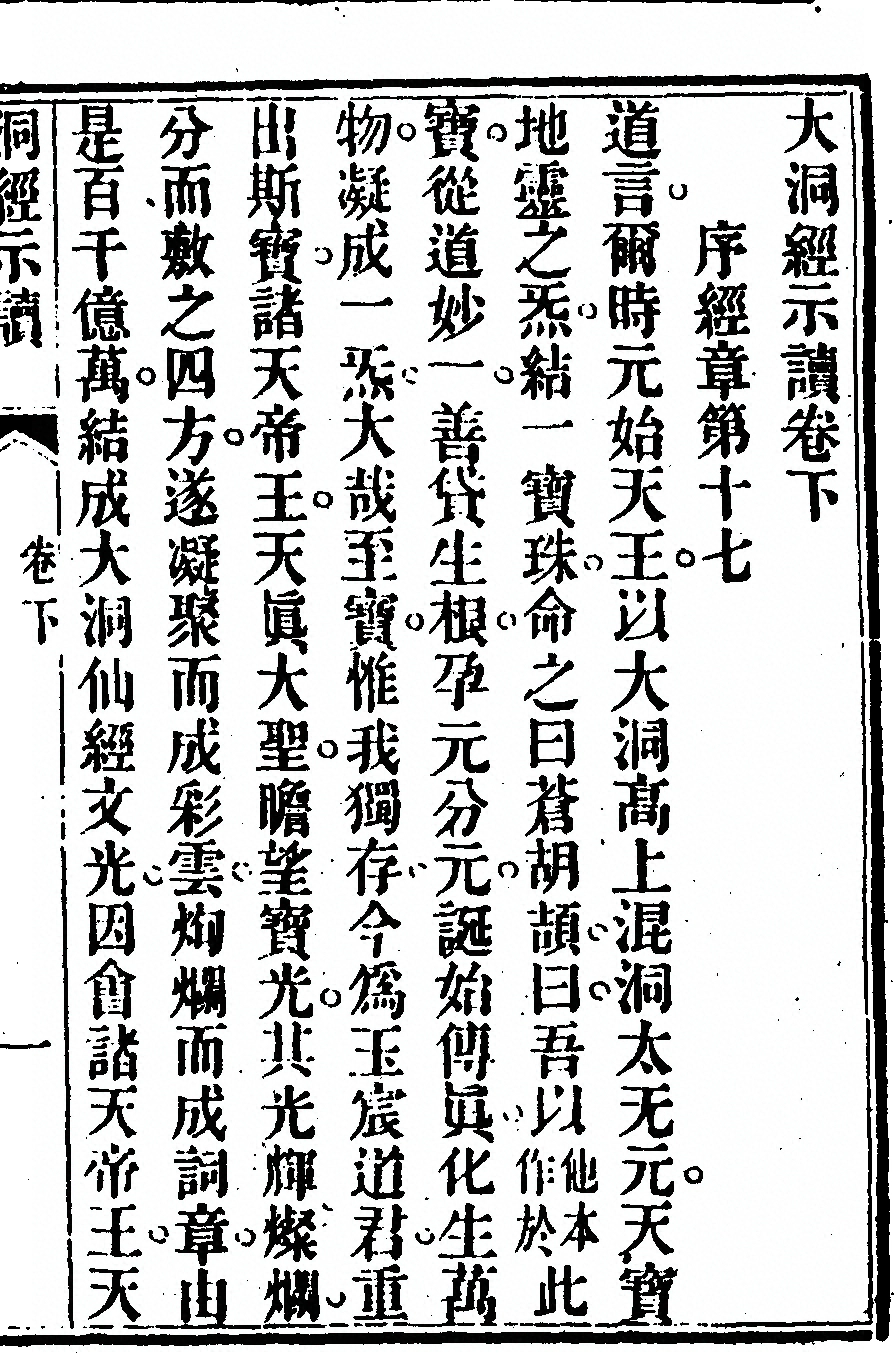 大洞經示讀卷下
序經章第十七
道言。爾時元始天王。以大洞高上混洞太无元。天寶
地靈之炁。結一寶珠。命之曰蒼胡頡。曰。吾以他本作於此
寶。從道妙一。善貸生根。孕元分元。誕始傳眞。化生萬
物。凝成一炁。大哉至寶。惟我獨存。今爲玉宸道君。重
出斯寶。諸天帝王。天眞大聖。瞻望寶光。其光輝燦爛。
分而敷之四方。遂凝聚而成彩雲。炳爛而成詞章。由
是百千億萬。結成大洞仙經文光。因會諸天帝王。天
洞經示讀
卷下
一